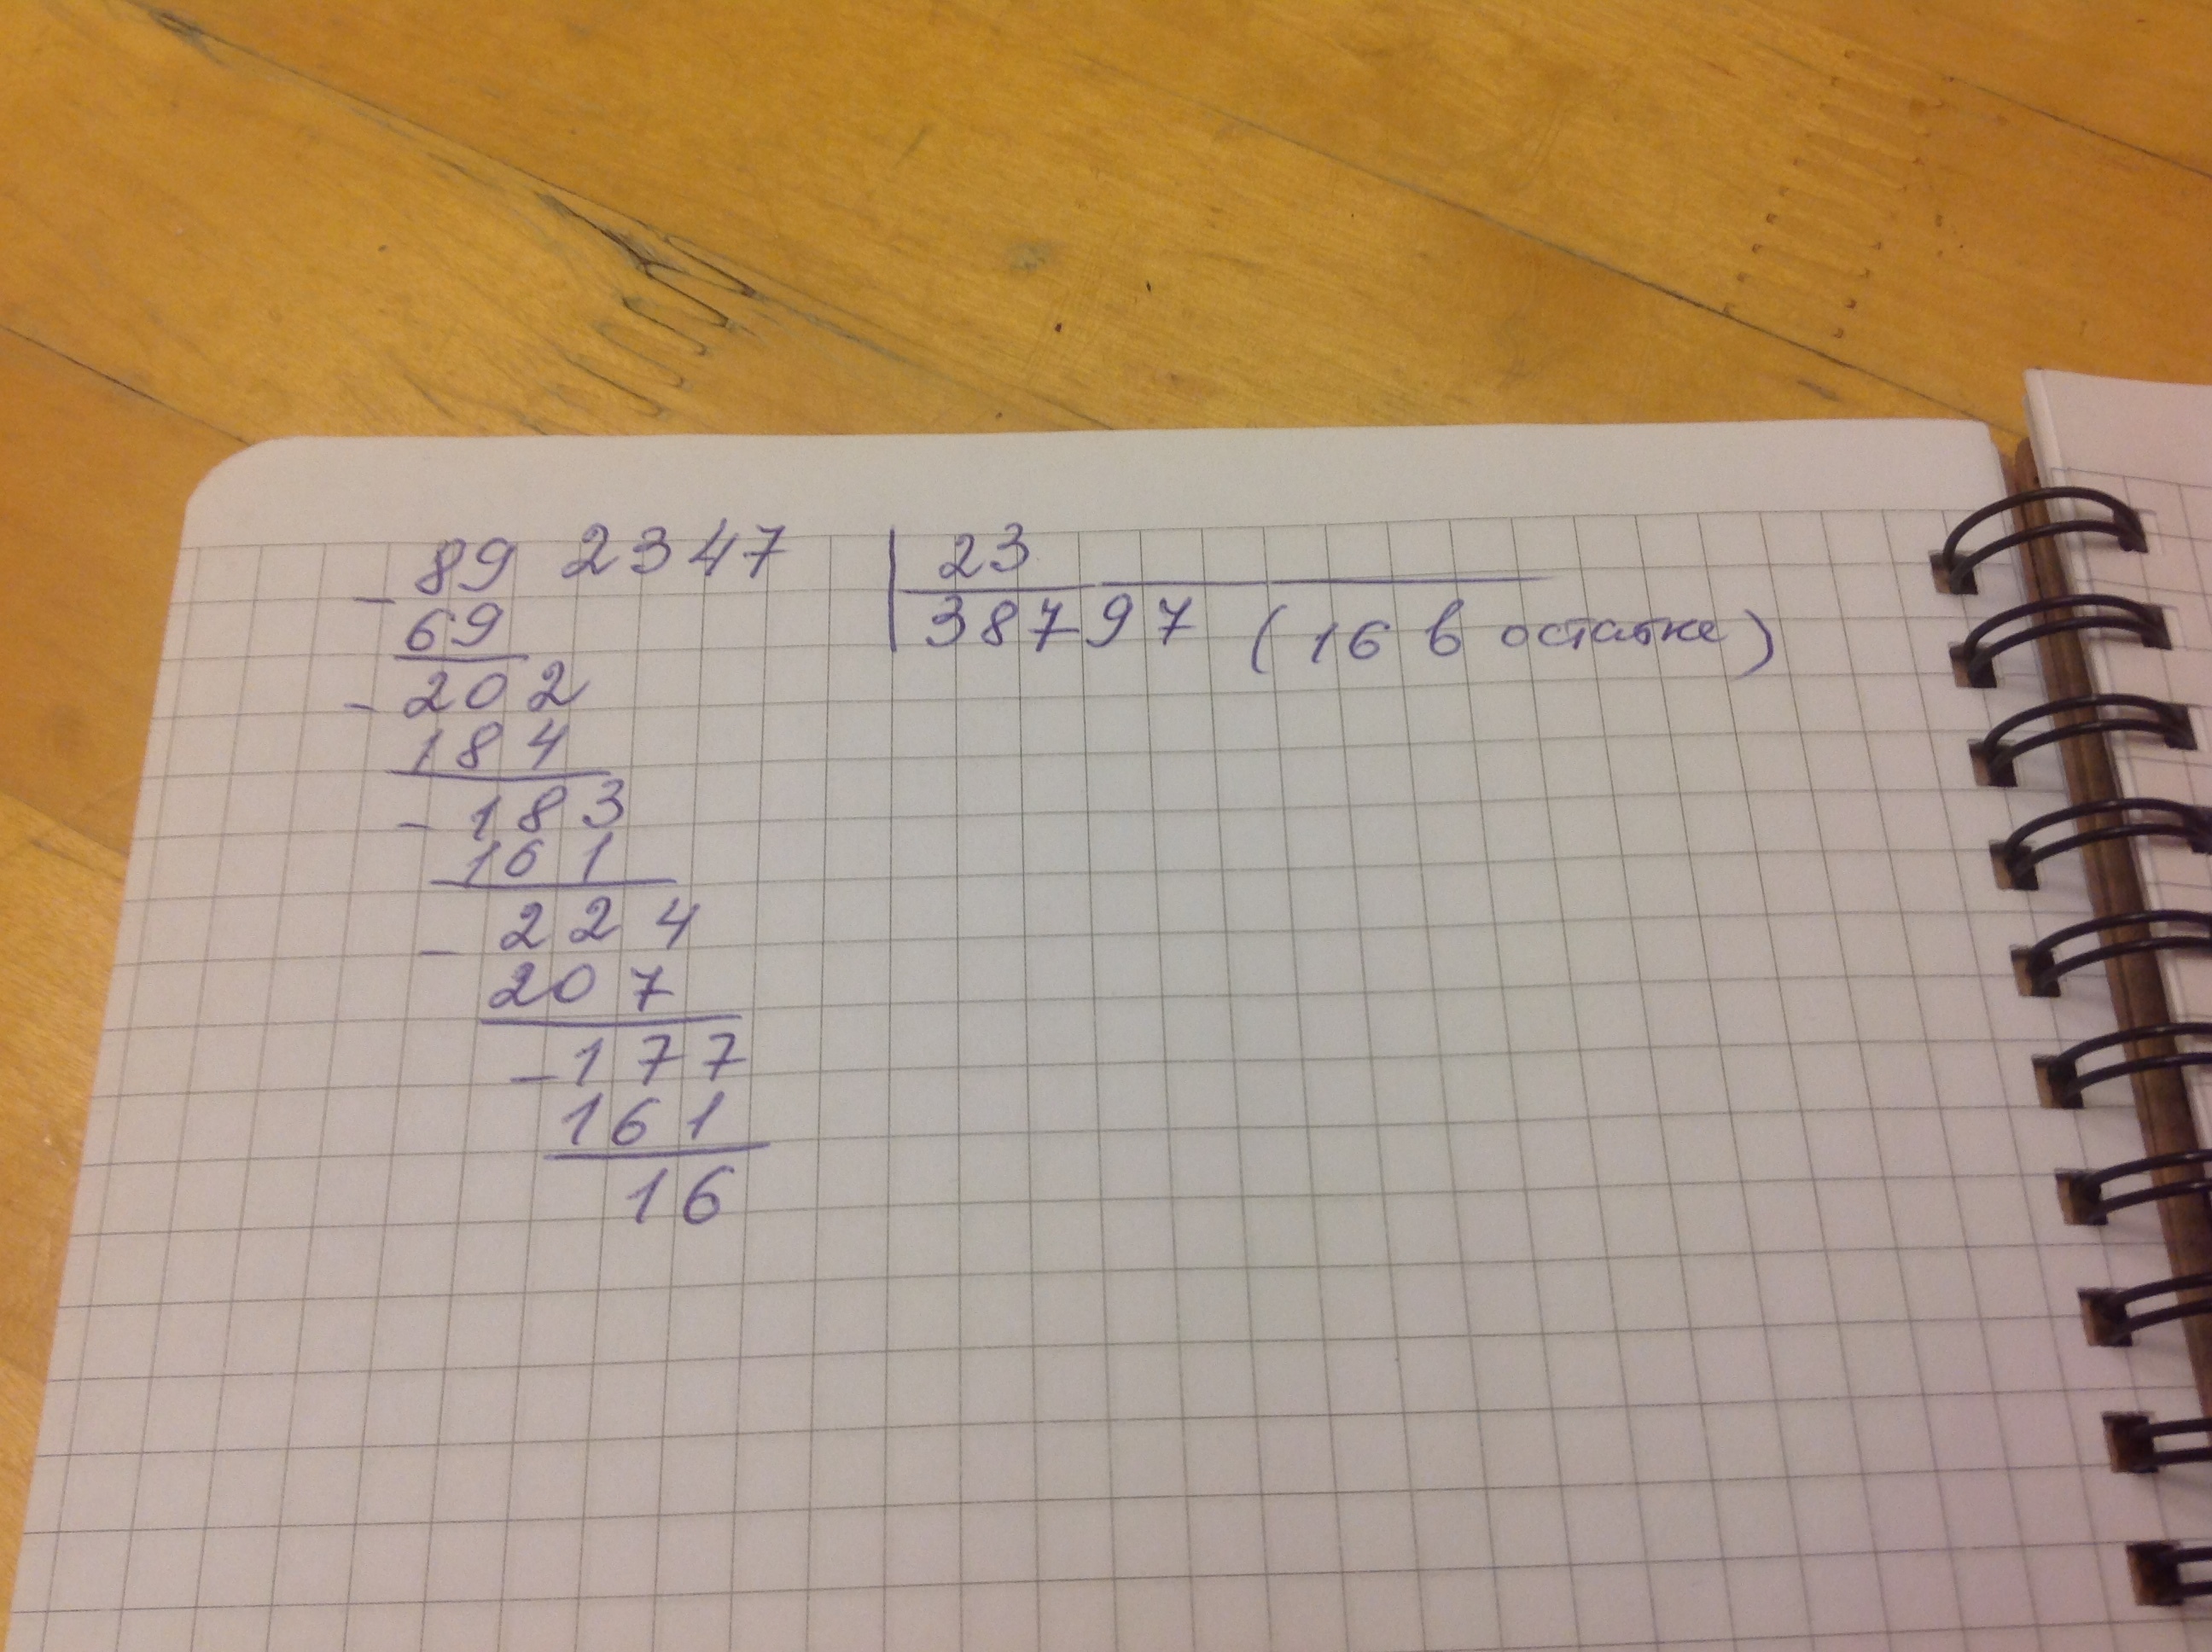 89 2347 23
- 69 38797 (16 в остатке)
- 202
184
- 183
161
- 224
207
- 177
161
16